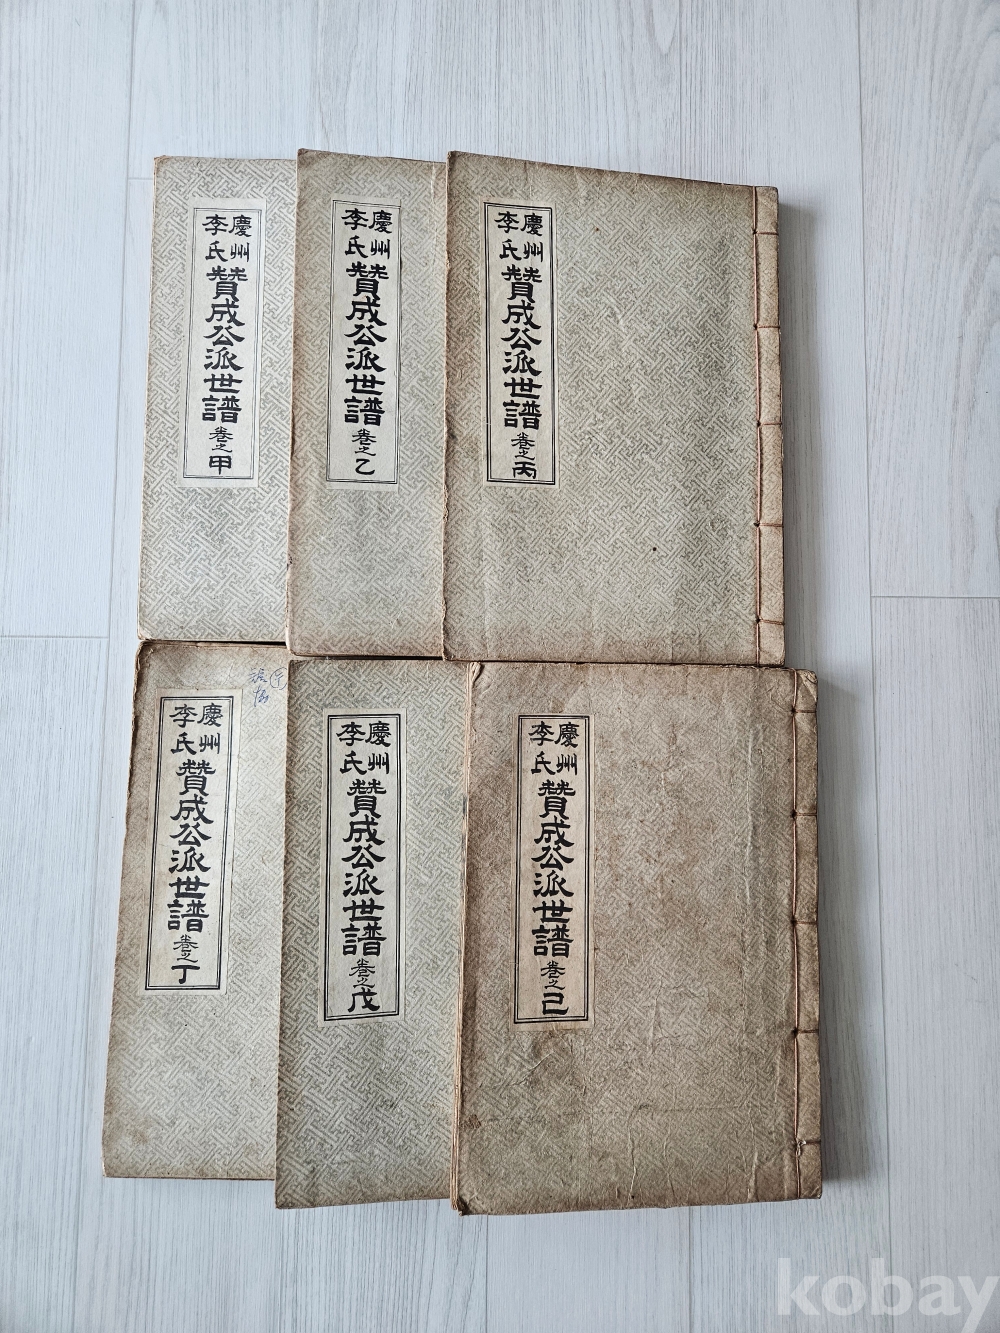 慶州
李氏
贊成公派世譜 卷之甲
慶州
李氏
贊成公派世譜 卷之乙
慶州
李氏
贊成公派世譜 卷之丙
慶州
李氏
贊成公派世譜 卷之丁
慶州
李氏
贊成公派世譜 卷之戊
慶州
李氏
贊成公派世譜 卷之己
kobay